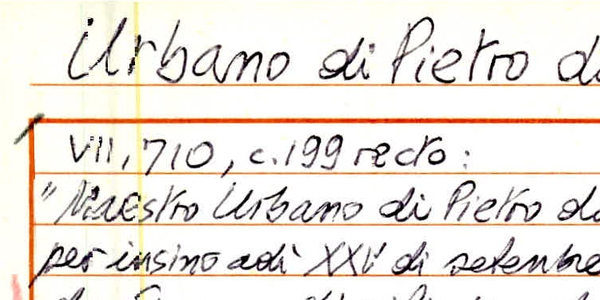 Urbano di Pietro d
VII, 710, c. 199 recto:
"Maestro Urbano di Pietro d
per insino adì XXV di setenbre